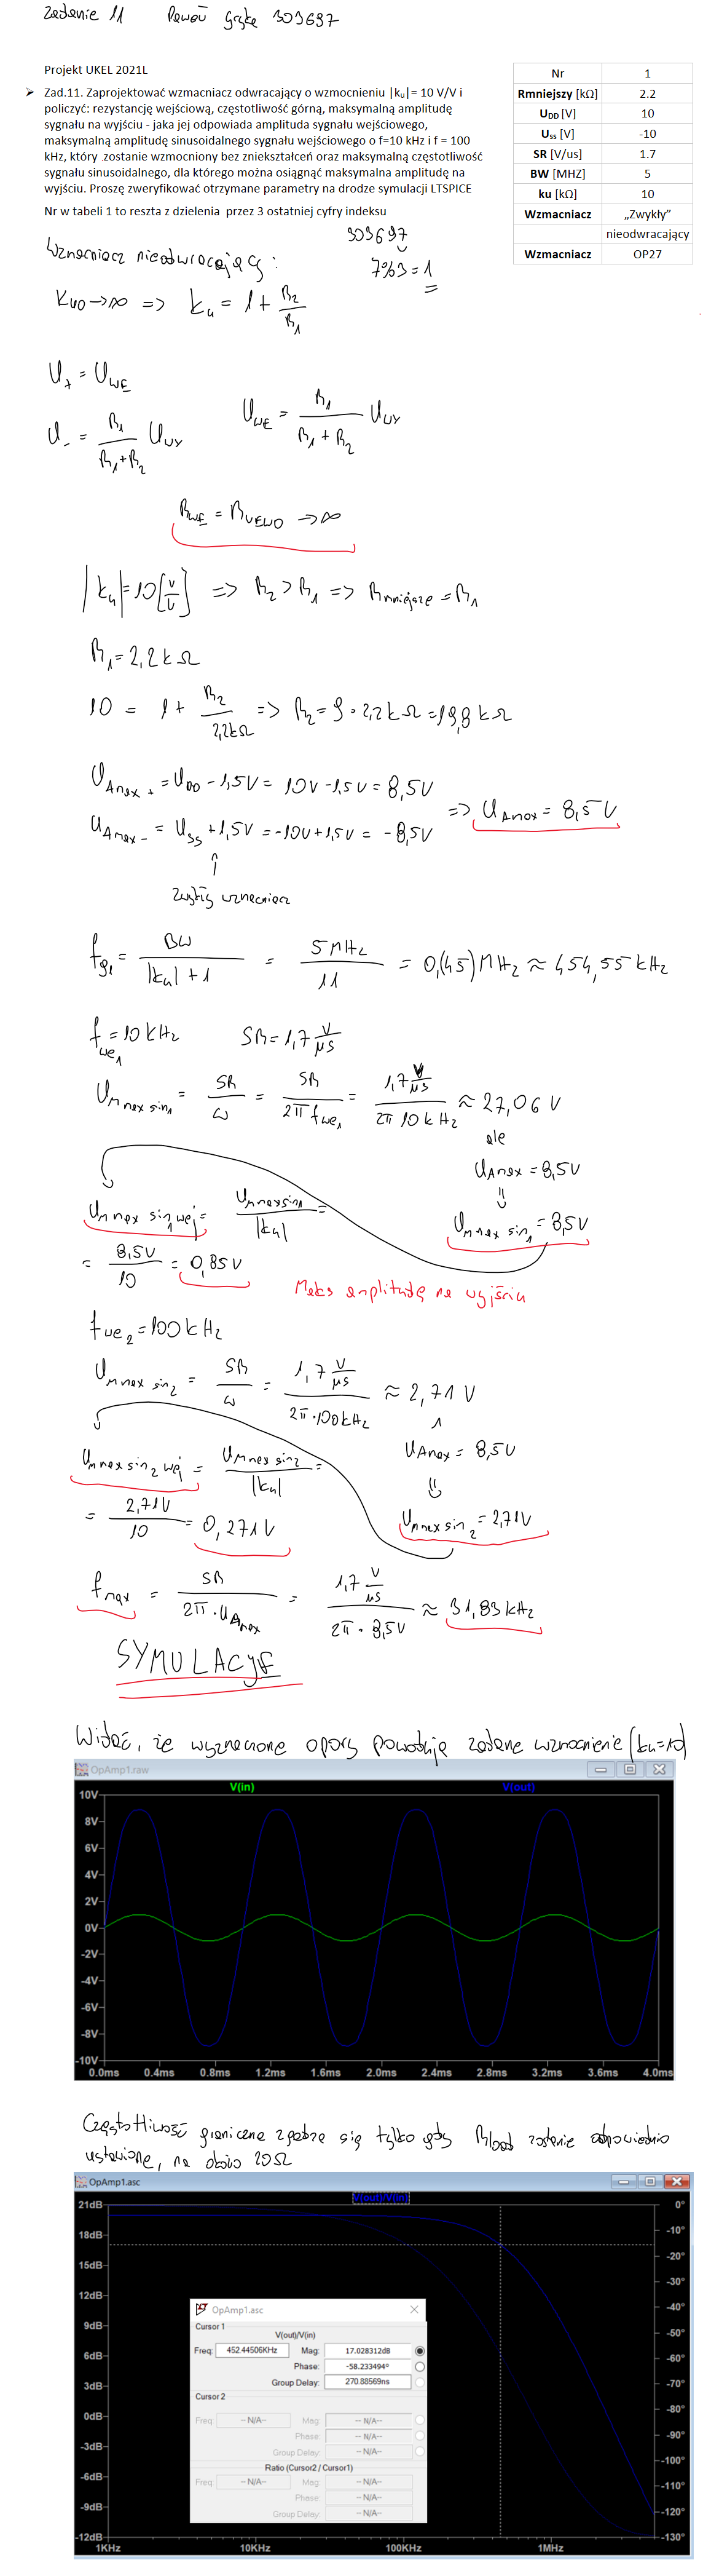 Zadanie 11 Paweł 303697
Projekt UKEL 2021L
➤ Zad.11. Zaprojektować wzmacniacz odwracający o wzmocnieniu |ku|= 10 V/V i
policzyć: rezystancję wejściową, częstotliwość górną, maksymalną amplitudę
sygnału na wyjściu - jaka jej odpowiada amplituda sygnału wejściowego,
maksymalną amplitudę sinusoidalnego sygnału wejściowego o f=10 kHz i f = 100
kHz, który .zostanie wzmocniony bez zniekształceń oraz maksymalną częstotliwość
sygnału sinusoidalnego, dla którego można osiągnąć maksymalna amplitudę na
wyjściu. Proszę zweryfikować otrzymane parametry na drodze symulacji LTSPICE
Nr w tabeli 1 to reszta z dzielenia przez 3 ostatniej cyfry indeksu
Nr 1
Rmniejszy [kΩ] 2.2
UDD [V] 10
Uss [V] -10
SR [V/us] 1.7
BW [MHZ] 5
ku [kΩ] 10
Wzmacniacz „Zwykły”
nieodwracający
Wzmacniacz OP27
303697
7%3=1
Wzmacniacz nieodwracający:
Kuo→∞ => ku = 1 + R2/R1
U+ = UWE
U- = R1/(R1+R2) UWY
UWE = R1/(R1+R2) UWY
RWE = RWEWO →∞
|ku|=10[V/V] => R2 > R1 => Rmniejsze = R1
R1 = 2,2kΩ
10 = 1 + R2/2,2kΩ => R2 = 9 · 2,2kΩ = 19,8kΩ
UAmax+ = UDD - 1,5V = 10V - 1,5V = 8,5V
UAmax- = USS + 1,5V = -10V + 1,5V = -8,5V
=> UAmax = 8,5V
↑
zwykły wzmacniacz
fg1 = BW/(|ku|+1) = 5MHz/11 = 0,(45)MHz ≈ 454,55kHz
fwe1 = 10kHz SR = 1,7 V/μs
UMmaxsin1 = SR/ω = SR/(2πfwe1) = 1,7V/μs/(2π10kHz) ≈ 27,06V
ale
UAmax = 8,5V
⇓
UMmaxsin1 = 8,5V
UMmaxsin1wej = UMmaxsin1/|ku| =
= 8,5V/10 = 0,85V
Maks amplitudę na wyjściu
fwe2 = 100kHz
UMmaxsin2 = SR/ω = 1,7V/μs/(2π·100kHz) ≈ 2,71V
∧
UAmax = 8,5V
⇓
UMmaxsin2 = 2,71V
UMmaxsin2wej = UMmaxsin2/|ku| =
= 2,71V/10 = 0,271V
fmax = SR/(2π·UAmax) = 1,7V/μs/(2π·8,5V) ≈ 31,83kHz
SYMULACJE
Widać, że wyznaczone opory powodują zadane wzmocnienie (ku=10)
OpAmp1.raw
V(in) V(out)
10V
8V
6V
4V
2V
0V
-2V
-4V
-6V
-8V
-10V
0.0ms 0.4ms 0.8ms 1.2ms 1.6ms 2.0ms 2.4ms 2.8ms 3.2ms 3.6ms 4.0ms
Częstotliwość graniczna zgadza się tylko gdy Rload zostanie odpowiednio
ustawione, na około 20Ω
OpAmp1.asc
V(out)/V(in)
21dB 0°
18dB -10°
15dB -20°
12dB -30°
9dB -40°
6dB -50°
3dB -60°
0dB -70°
-3dB -80°
-6dB -90°
-9dB -100°
-12dB -110°
-120°
-130°
1KHz 10KHz 100KHz 1MHz
OpAmp1.asc
Cursor 1
V(out)/V(in)
Freq: 452.44506KHz Mag: 17.028312dB
Phase: -58.233494°
Group Delay: 270.88569ns
Cursor 2
Freq: -- N/A-- Mag: -- N/A--
Phase: -- N/A--
Group Delay: -- N/A--
Ratio (Cursor2 / Cursor1)
Freq: -- N/A-- Mag: -- N/A--
Phase: -- N/A--
Group Delay: -- N/A--